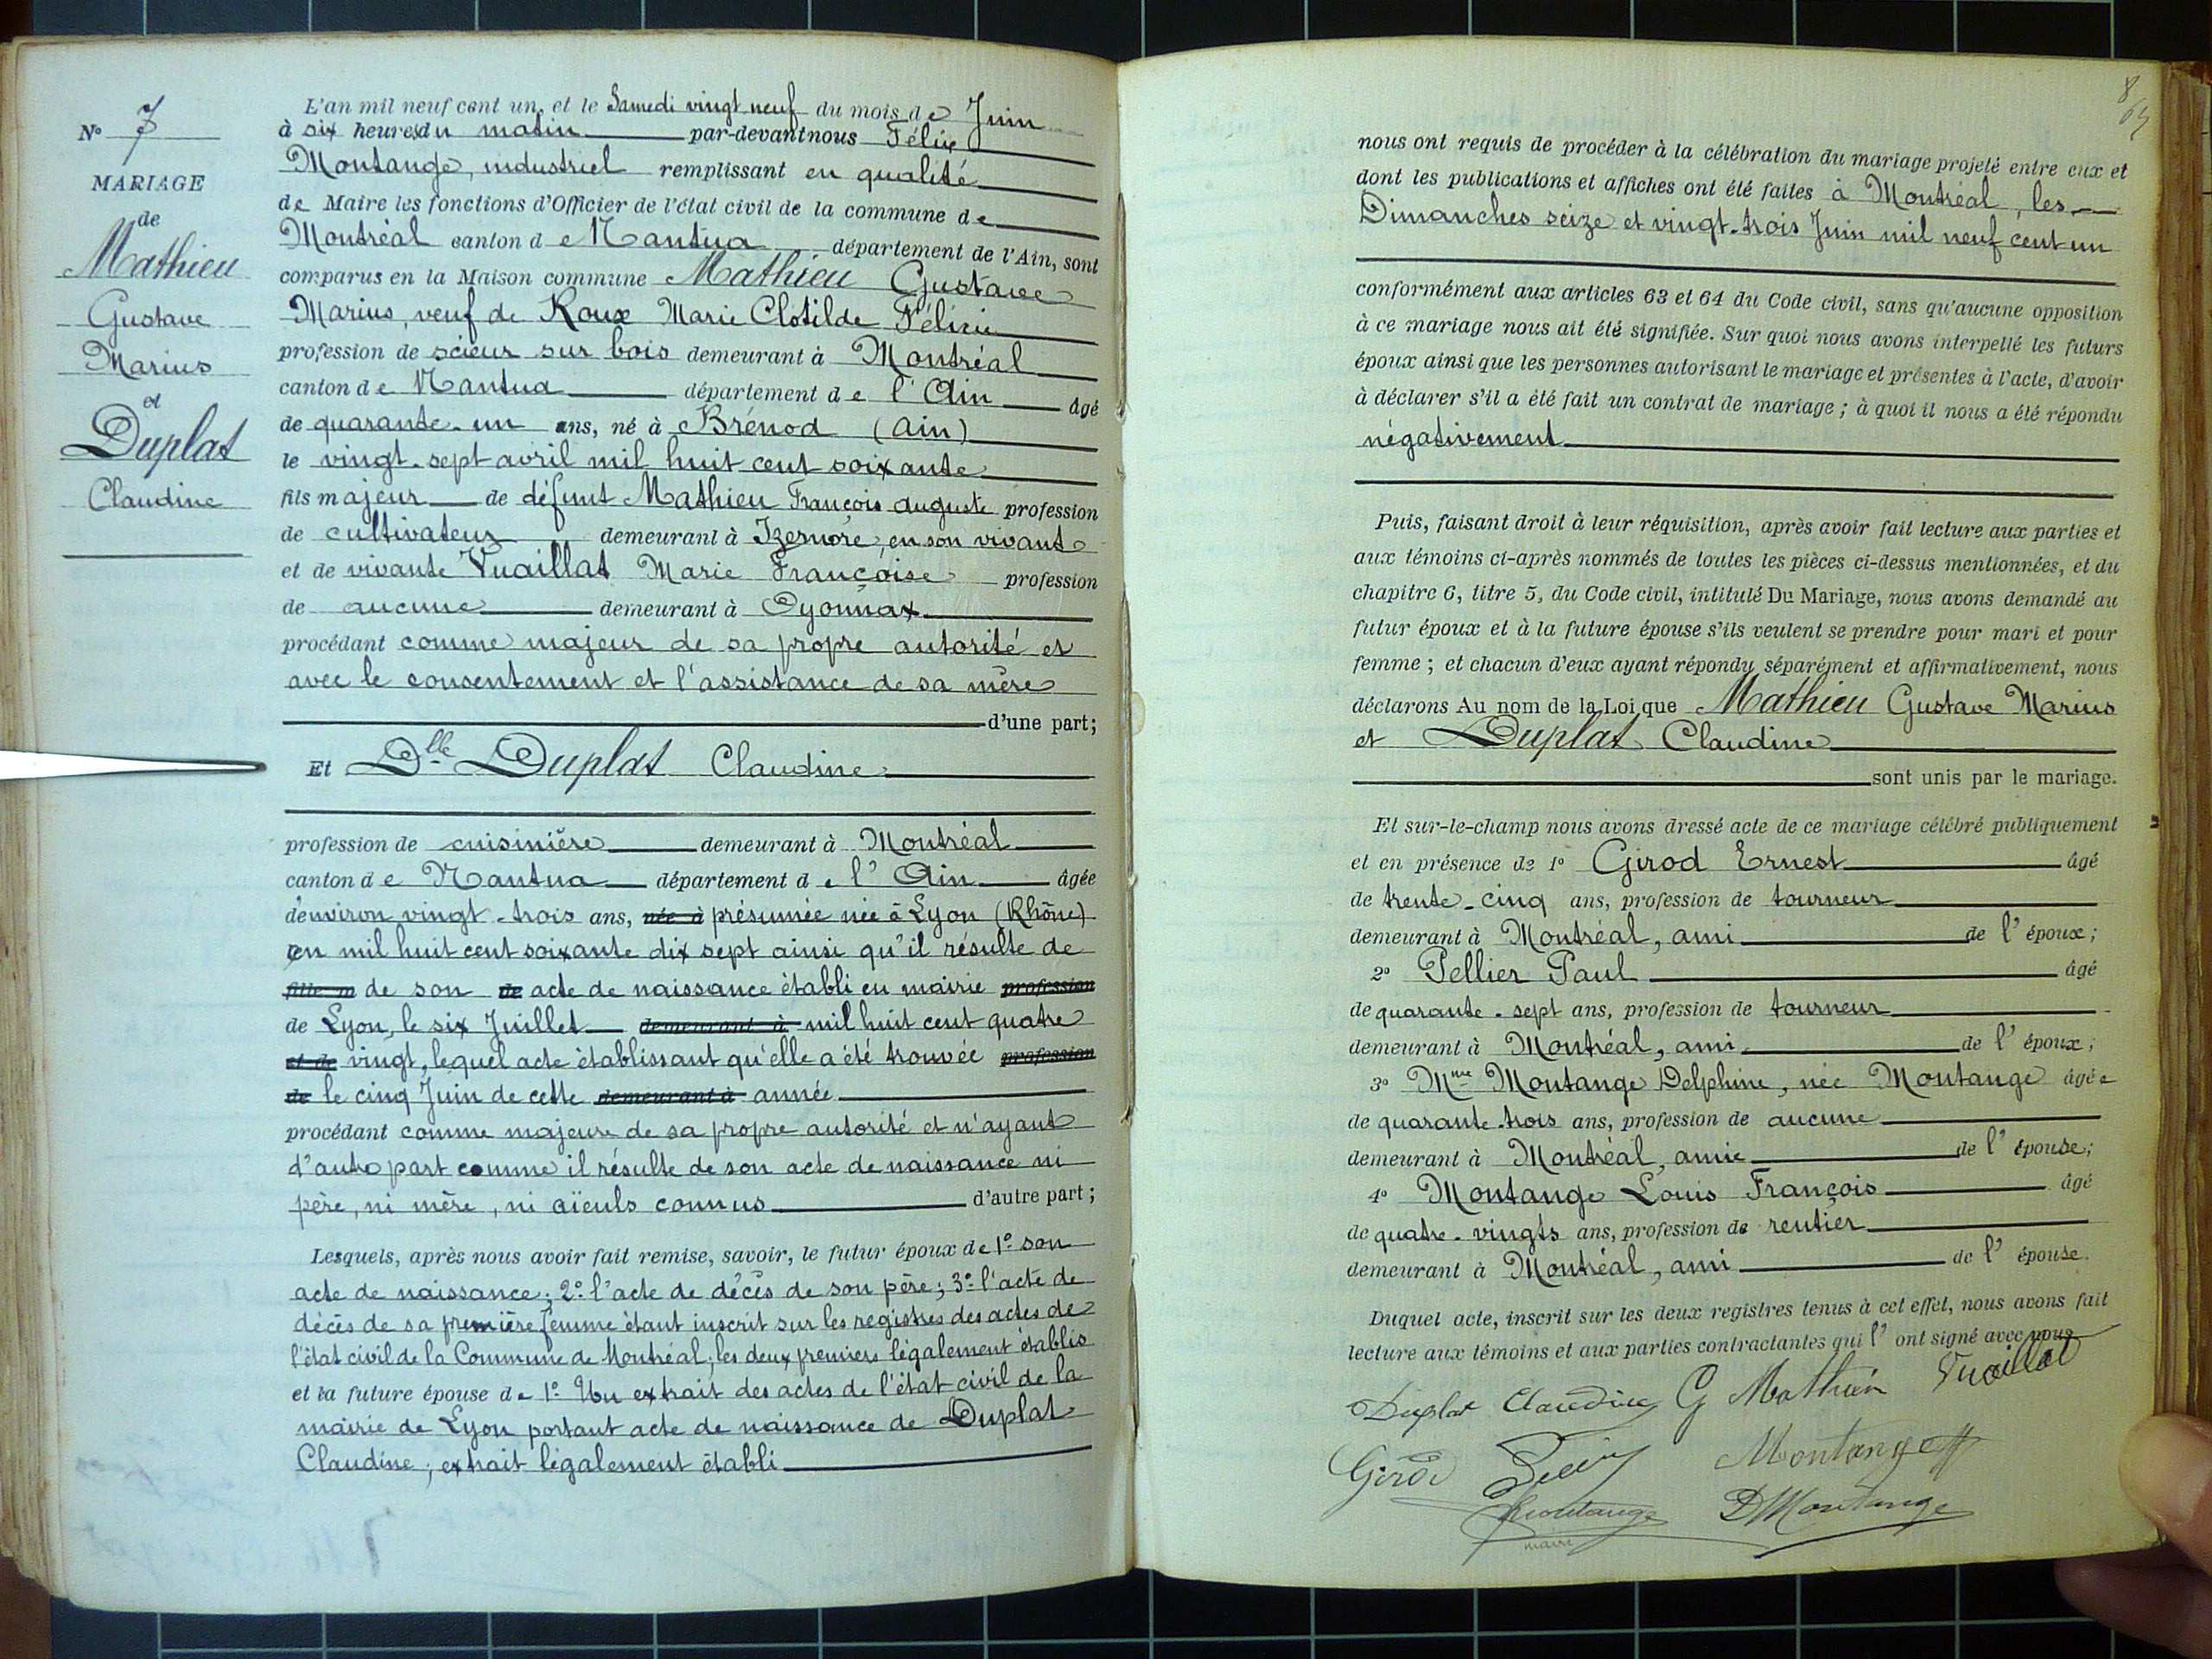 N° 7
MARIAGE
de
Mathieu
Gustave
Marius
et
Duplat
Claudine
L'an mil neuf cent un, et le Samedi vingt neuf du mois de Juin
à six heures du matin par-devant nous Félix
Montange, industriel remplissant en qualité
de Maire les fonctions d'Officier de l'état civil de la commune de
Montréal canton de Nantua département de l'Ain, sont
comparus en la Maison commune Mathieu Gustave
Marius, veuf de Roux Marie Clotilde Félicie
profession de scieur sur bois demeurant à Montréal
canton de Nantua département de l'Ain âgé
de quarante-un ans, né à Brénod (Ain)
le vingt-sept avril mil huit cent soixante
fils majeur de défunt Mathieu François Auguste profession
de cultivateur demeurant à Izernore, en son vivant
et de vivante Vuaillat Marie Françoise profession
de aucune demeurant à Oyonnax
procédant comme majeur de sa propre autorité et
avec le consentement et l'assistance de sa mère
d'une part;
Et Dlle Duplat Claudine
profession de cuisinière demeurant à Montréal
canton de Nantua département de l'Ain âgée
d'environ vingt-trois ans, née à présumée née à Lyon (Rhône)
en mil huit cent soixante dix sept ainsi qu'il résulte de
fille m de son de acte de naissance établi en mairie profession
de Lyon, le six Juillet demeurant à mil huit cent quatre
et de vingt, lequel acte établissant qu'elle a été trouvée profession
de le cinq Juin de cette demeurant à année
procédant comme majeure de sa propre autorité et n'ayant
d'autre part comme il résulte de son acte de naissance ni
père, ni mère, ni aïeuls connus d'autre part;
Lesquels, après nous avoir fait remise, savoir, le futur époux de 1° son
acte de naissance; 2° l'acte de décès de son père; 3° l'acte de
décès de sa première femme étant inscrit sur les registres des actes de
l'état civil de la Commune de Montréal; les deux premiers légalement établis
et la future épouse de 1° Un extrait des actes de l'état civil de la
mairie de Lyon portant acte de naissance de Duplat
Claudine; extrait légalement établi
8
nous ont requis de procéder à la célébration du mariage projeté entre eux et
dont les publications et affiches ont été faites à Montréal, les
Dimanches seize et vingt-trois Juin mil neuf cent un
conformément aux articles 63 et 64 du Code civil, sans qu'aucune opposition
à ce mariage nous ait été signifiée. Sur quoi nous avons interpellé les futurs
époux ainsi que les personnes autorisant le mariage et présentes à l'acte, d'avoir
à déclarer s'il a été fait un contrat de mariage; à quoi il nous a été répondu
négativement
Puis, faisant droit à leur réquisition, après avoir fait lecture aux parties et
aux témoins ci-après nommés de toutes les pièces ci-dessus mentionnées, et du
chapitre 6, titre 5, du Code civil, intitulé Du Mariage, nous avons demandé au
futur époux et à la future épouse s'ils veulent se prendre pour mari et pour
femme; et chacun d'eux ayant répondu séparément et affirmativement, nous
déclarons Au nom de la Loi que Mathieu Gustave Marius
et Duplat Claudine
sont unis par le mariage.
Et sur-le-champ nous avons dressé acte de ce mariage célébré publiquement
et en présence de 1° Girod Ernest âgé
de trente-cinq ans, profession de tourneur
demeurant à Montréal, ami de l'époux;
2° Pellier Paul âgé
de quarante-sept ans, profession de tourneur
demeurant à Montréal, ami de l'époux;
3° Mme Montange Delphine, née Montange âgée
de quarante-trois ans, profession de aucune
demeurant à Montréal, amie de l'épouse;
4° Montange Louis François âgé
de quatre-vingts ans, profession de rentier
demeurant à Montréal, ami de l'épouse.
Duquel acte, inscrit sur les deux registres tenus à cet effet, nous avons fait
lecture aux témoins et aux parties contractantes qui l'ont signé avec nous
Duplat Claudine G Mathieu Vuaillat
Girod Montange
Montange D Montange
maire